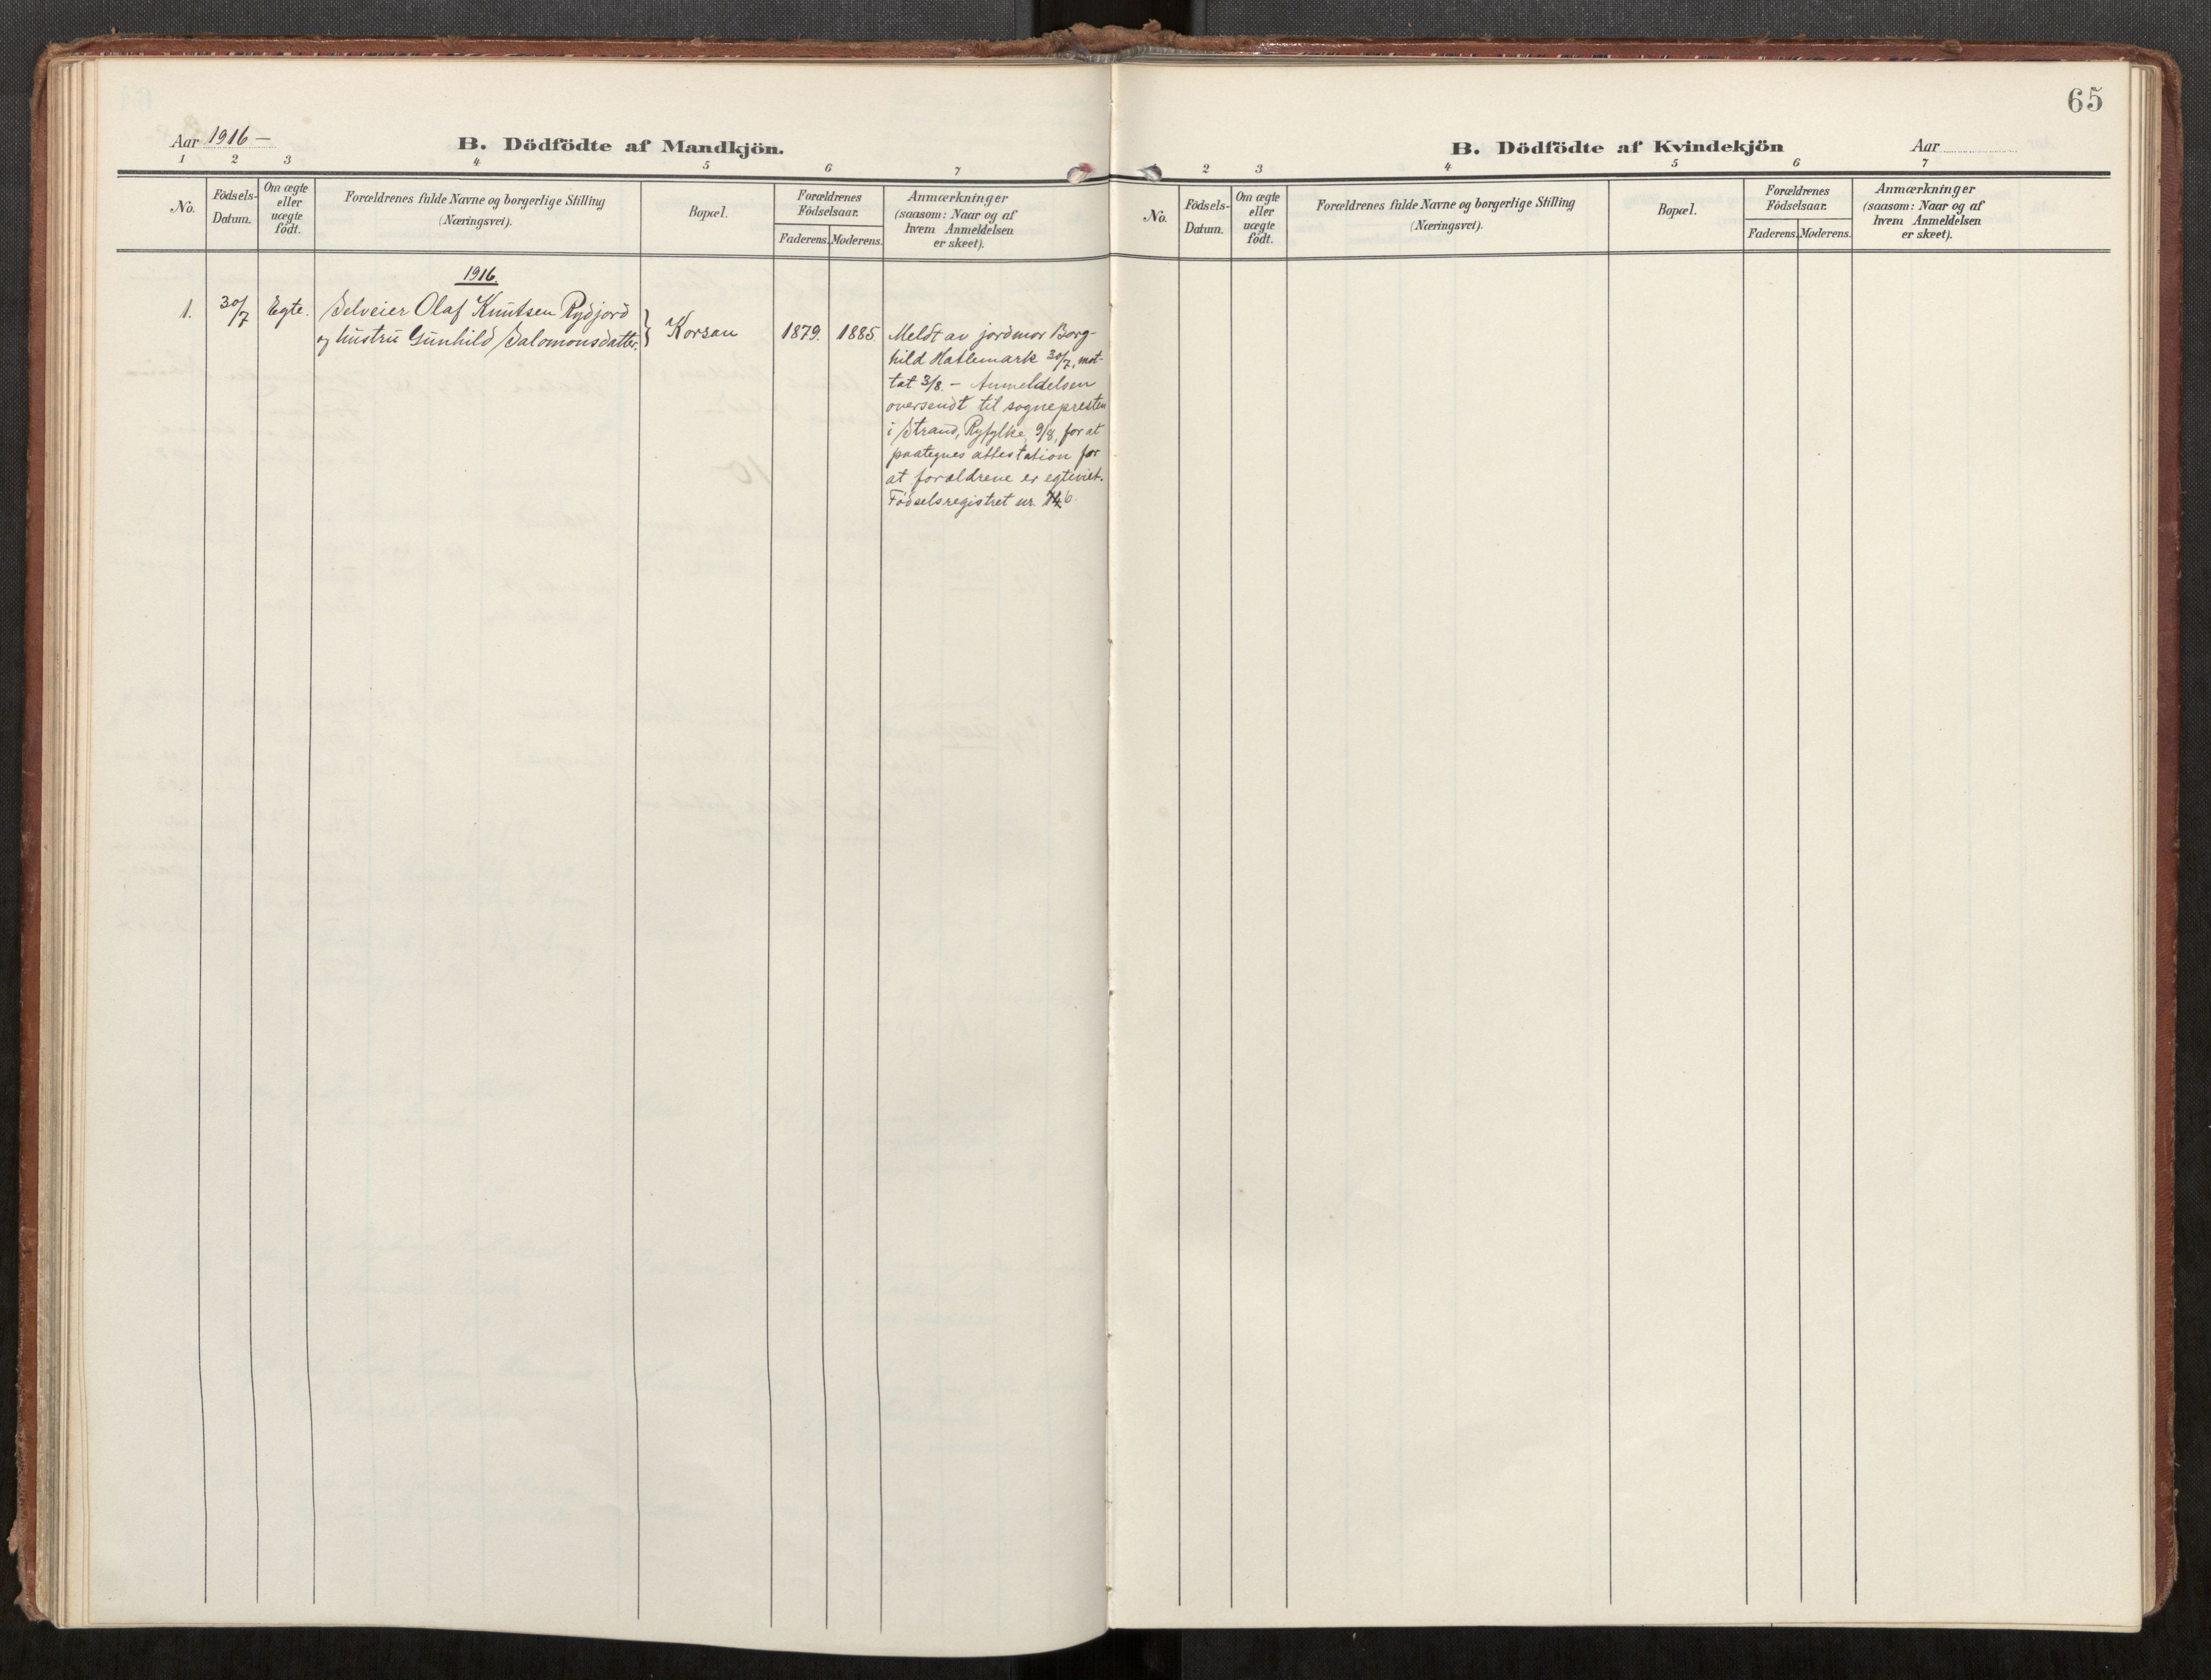 65
Aar 1916 —
B. Dödfödte af Mandkjön.
1 2 3 4 5 6 7
No.
Födsels-
Datum.
Om ægte
eller
uægte
födt.
Forældrenes fulde Navne og borgerlige Stilling
(Næringsvei).
Bopæl.
Forældrenes
Födselsaar.
Faderens. Moderens.
Anmærkninger
(saasom: Naar og af
hvem Anmeldelsen
er skeet).
1916
1. 30/7 Egte. Selveier Olaf Knutsen Rydjord
og hustru Gunhild Salomonsdatter.
Korsan 1879. 1885.
Meldt av jordmor Borg-
hild Hatlemark 30/7, mot-
tat 3/8. — Anmeldelsen
oversendt til sognepresten
i Strand, Ryfylke, 9/8, for at
paategnes attestation for
at forældrene er egteviet.
Födselsregistret nr.
B. Dödfödte af Kvindekjön
Aar
2 3 4 5 6 7
No.
Födsels-
Datum.
Om ægte
eller
uægte
födt.
Forældrenes fulde Navne og borgerlige Stilling
(Næringsvei).
Bopæl.
Forældrenes
Födselsaar.
Faderens. Moderens.
Anmærkninger
(saasom: Naar og af
hvem Anmeldelsen
er skeet).